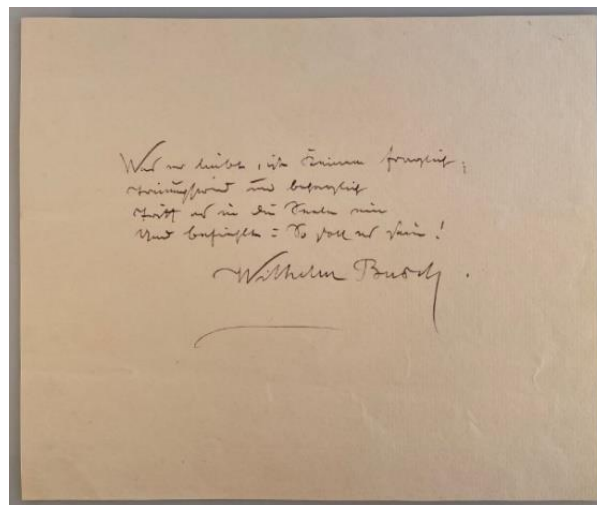 Was er liebt, ist Keinem fraglich;
Triumphirend und behaglich
Tritt es in die Seele ein
Und befiehlt: So soll es sein!
Wilhelm Busch.